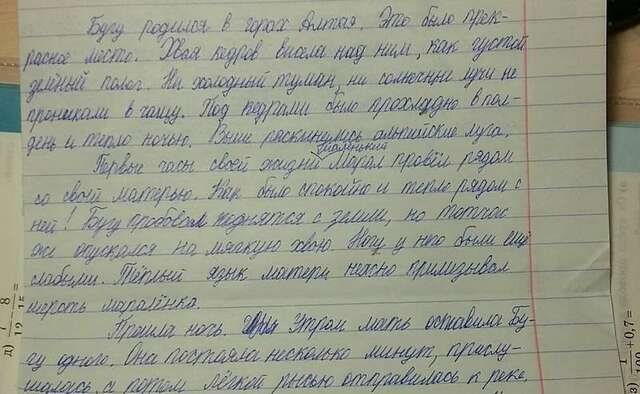 Бугу родился в горах Алтая. Это было прек-
расное место. Хвоя кедров висела над ним, как густой
зелёный полог. Ни холодный туман, ни солнечные лучи не
проникали в чащу. Под кедрами было прохладно в пол-
день и тепло ночью. Выше раскинулись альпийские луга.
маленький
Первые часы своей жизни марал провёл рядом
со своей матерью. Как было спокойно и тепло рядом с
ней! Бугу пробовал поднятся с земли, но тотчас
же опускался на мягкую хвою Ноги у него были ещё
слабыми. Тёплый язык матери нежно прилизывал
шерсть маралёнка.
Прошла ночь. Утром мать оставила Бу-
гу одного. Она постояла несколько минут, прислу-
шалась, а потом лёгкой рысью отправилась к реке.
д) 8
12 15 =
з) 1
100 + 0,7 =